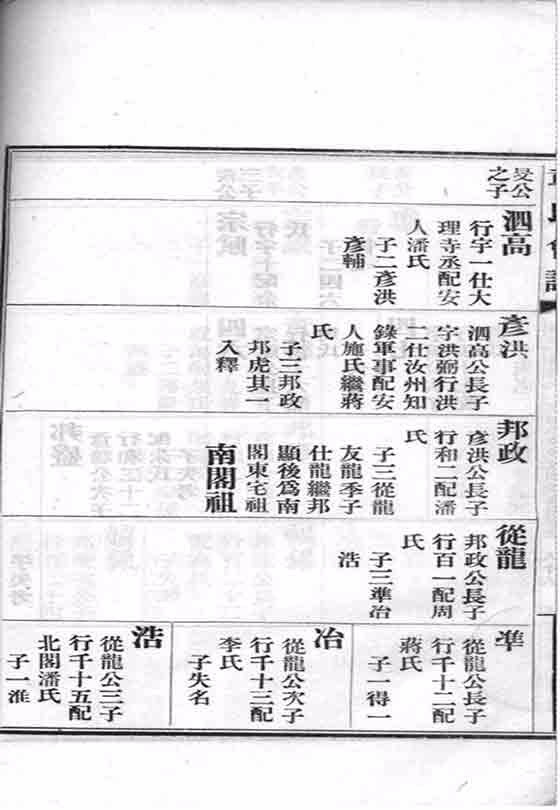 旻公
之子
泗高
行宇一仕大
理寺丞配安
人潘氏
子二彥洪
彥輔
彥洪
泗高公長子
字洪弼行洪
二仕汝州知
錄軍事配安
人施氏繼蔣
氏
子三邦政
邦虎其一
入釋
邦政
彥洪公長子
行和二配潘
氏
子三從龍
友龍季子
仕龍繼邦
顯後爲南
閣東宅祖
南閣祖
從龍
邦政公長子
行百一配周
氏
子三準冶
浩
準
從龍公長子
行千十二配
蔣氏
子一得一
冶
從龍公次子
行千十三配
李氏
子失名
浩
從龍公三子
行千十五配
北閣潘氏
子一淮